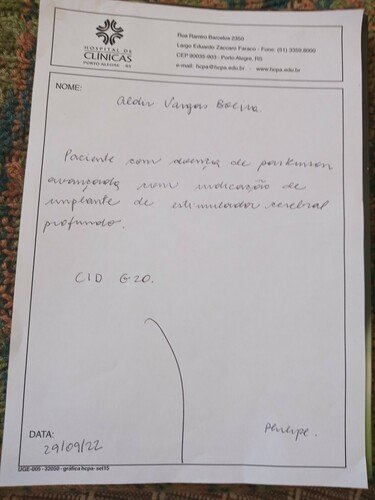 HOSPITAL DE
CLÍNICAS
PORTO ALEGRE RS
Rua Ramiro Barcelos 2350
Largo Eduardo Zaccaro Faraco - Fone: (51) 3359.8000
CEP 90035-903 - Porto Alegre, RS
e-mail: hcpa@hcpa.edu.br - www.hcpa.edu.br
NOME:
Aldir Vargas
Paciente com doença de parkinson
avançada com indicação de
implante de estimulador cerebral
profundo.
CID G20.
DATA:
29/09/22
UGE-005 - 32050 - gráfica hcpa- set15